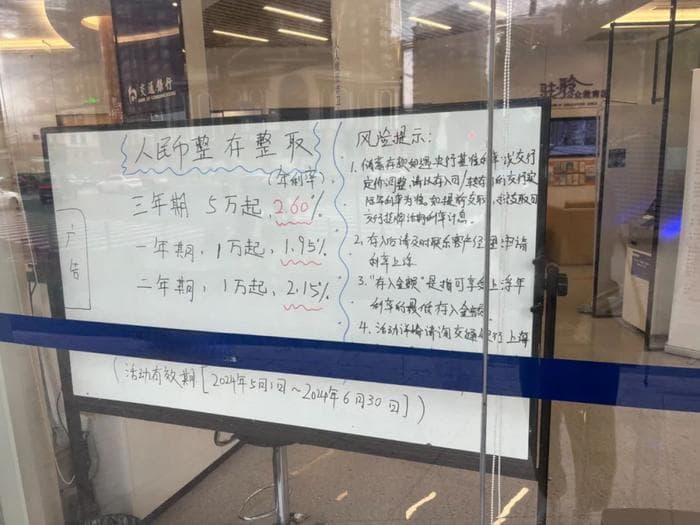 交通银行
BANK OF COMMUNICATIONS
人民币整存整取
(年利率)
三年期 5万起, 2.60%
一年期, 1万起, 1.95%
二年期, 1万起, 2.15%
广告
(活动有效期[2024年5月1日~2024年6月30日])
风险提示:
1. 储蓄存款如遇央行基准利率或交行
定价调整, 请以存入日/转存日的交行实
际年利率为准, 如提前支取, 按支取日
交行挂牌活期利率计息.
2. 存入后请及时联系客户经理申请
利率上浮
3. "存入金额"是指可享受上浮年
利率的最低存入金额.
4. 活动详情请询交通银行上海